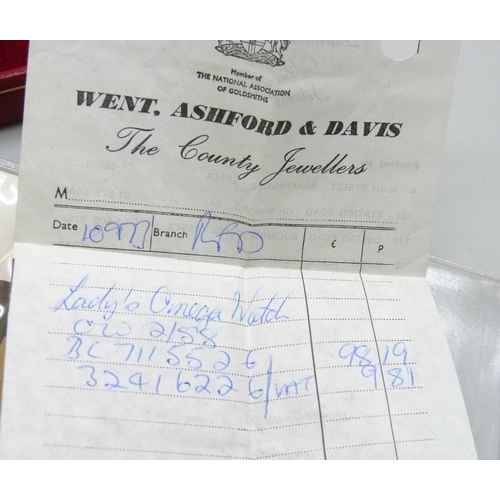 Member of
THE NATIONAL ASSOCIATION
OF GOLDSMITHS
WENT, ASHFORD & DAVIS
The County Jewellers
M
Date 10973 Branch £ P
Lady's Omega Watch
2155
BC 7115552 6 98 19
32416222 6 / VAT 9 81